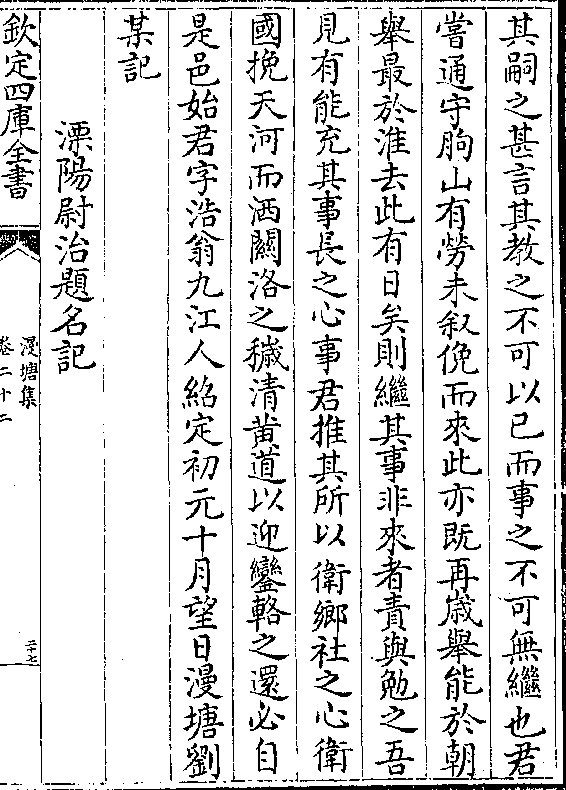 其嗣之甚言其教之不可以已而事之不可無繼也君
嘗通守朐山有勞未叙俛而來此亦既再歳舉能於朝
舉最於淮去此有日矣則繼其事非來者責與勉之吾
見有能充其事長之心事君推其所以衛鄉社之心衛
國挽天河而洒關洛之穢清黄道以迎鑾輅之還必自
是邑始君字浩翁九江人紹定初元十月望日漫塘劉
某記
溧陽尉治題名記
欽定四庫全書
漫塘集
卷二十二
二十七